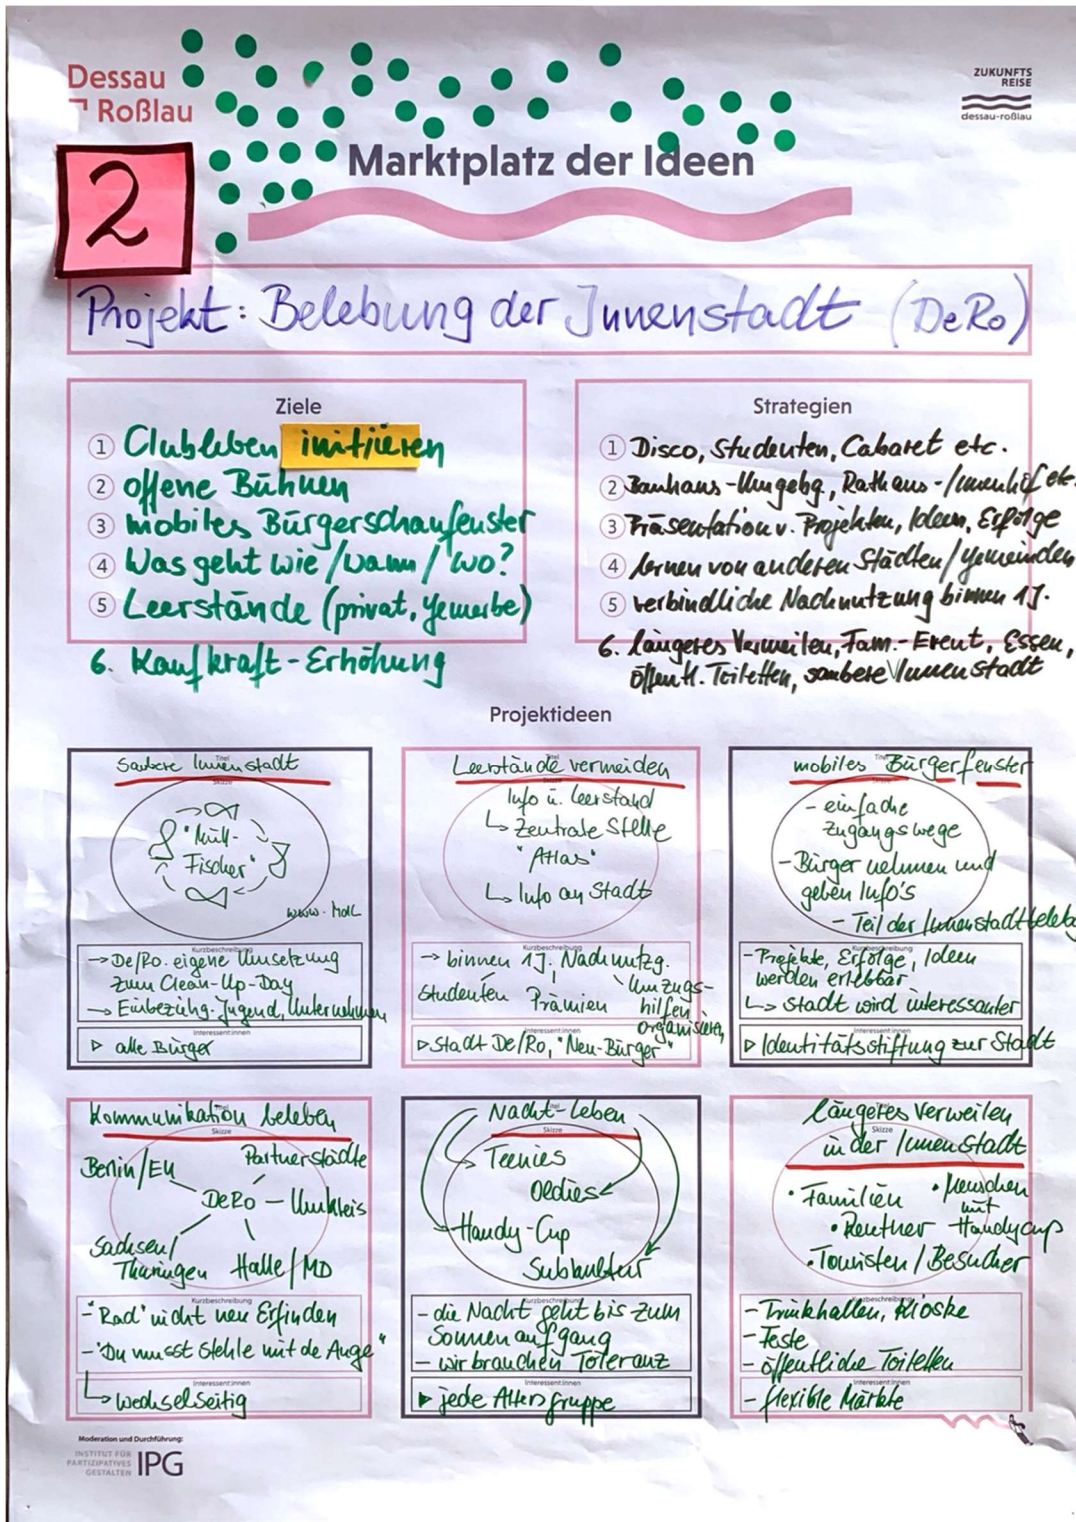 Dessau
Roßlau
ZUKUNFTS
REISE
dessau-roßlau
2
Marktplatz der Ideen
Projekt: Belebung der Innenstadt (DeRo)
Ziele
1 Clubleben initiieren
2 offene Bühnen
3 mobiles Bürgerschaufenster
4 Was geht wie/wann/wo?
5 Leerstände (privat, Gewerbe)
6. Kaufkraft-Erhöhung
Strategien
1 Disco, Studenten, Cabaret etc.
2 Bauhaus-Umgebg., Rathaus-/Innenhof etc.
3 Präsentation v. Projekten, Ideen, Erfolge
4 lernen von anderen Städten/Gemeinden
5 verbindliche Nachnutzung binnen 1J.
6. längeres Verweilen, Fam.-Event, Essen,
öffentl. Toiletten, saubere Innenstadt
Projektideen
Titel
Saubere Innenstadt
Skizze
"Müll-
Fischer"
Kurzbeschreibung
→ De/Ro. eigene Umsetzung
zum Clean-Up-Day
→ Einbeziehg. Jugend, Unternehmen
Interessent:innen
▷ alle Bürger
Titel
Leerstände vermeiden
Skizze
Info ü. Leerstand
↳ Zentrale Stelle
"Atlas"
↳ Info an Stadt
Kurzbeschreibung
→ binnen 1J. Nachnutzg.
Studenten Prämien Umzugs-
hilfen
organisieren
Interessent:innen
▷ Stadt De/Ro, "Neu-Bürger"
Titel
mobiles Bürgerfenster
Skizze
- einfache
Zugangswege
- Bürger nehmen und
geben Info's
- Teil der Innenstadtbeleb
Kurzbeschreibung
- Projekte, Erfolge, Ideen
werden erlebbar
↳ Stadt wird interessanter
Interessent:innen
▷ Identitätsstiftung zur Stadt
Kommunikation beleben
Skizze
Berlin/EU
Partnerstädte
DeRo - Umkreis
Sachsen/
Thüringen
Halle/MD
Kurzbeschreibung
- "Rad" nicht neu Erfinden
- "Du musst stehle mit de Auge"
Interessent:innen
↳ wechselseitig
Nacht-Leben
Skizze
Teenies
Oldies
Handy-Cup
Subkultur
Kurzbeschreibung
- die Nacht geht bis zum
Sonnenaufgang
- wir brauchen Toleranz
Interessent:innen
▶ jede Altersgruppe
längeres Verweilen
Skizze
in der Innenstadt
• Familien
• Menschen
mit
Handycup
• Rentner
• Touristen/Besucher
Kurzbeschreibung
- Trinkhallen, Kioske
- Feste
- öffentliche Toiletten
Interessent:innen
- flexible Märkte
Moderation und Durchführung:
INSTITUT FÜR
PARTIZIPATIVES
GESTALTEN
IPG